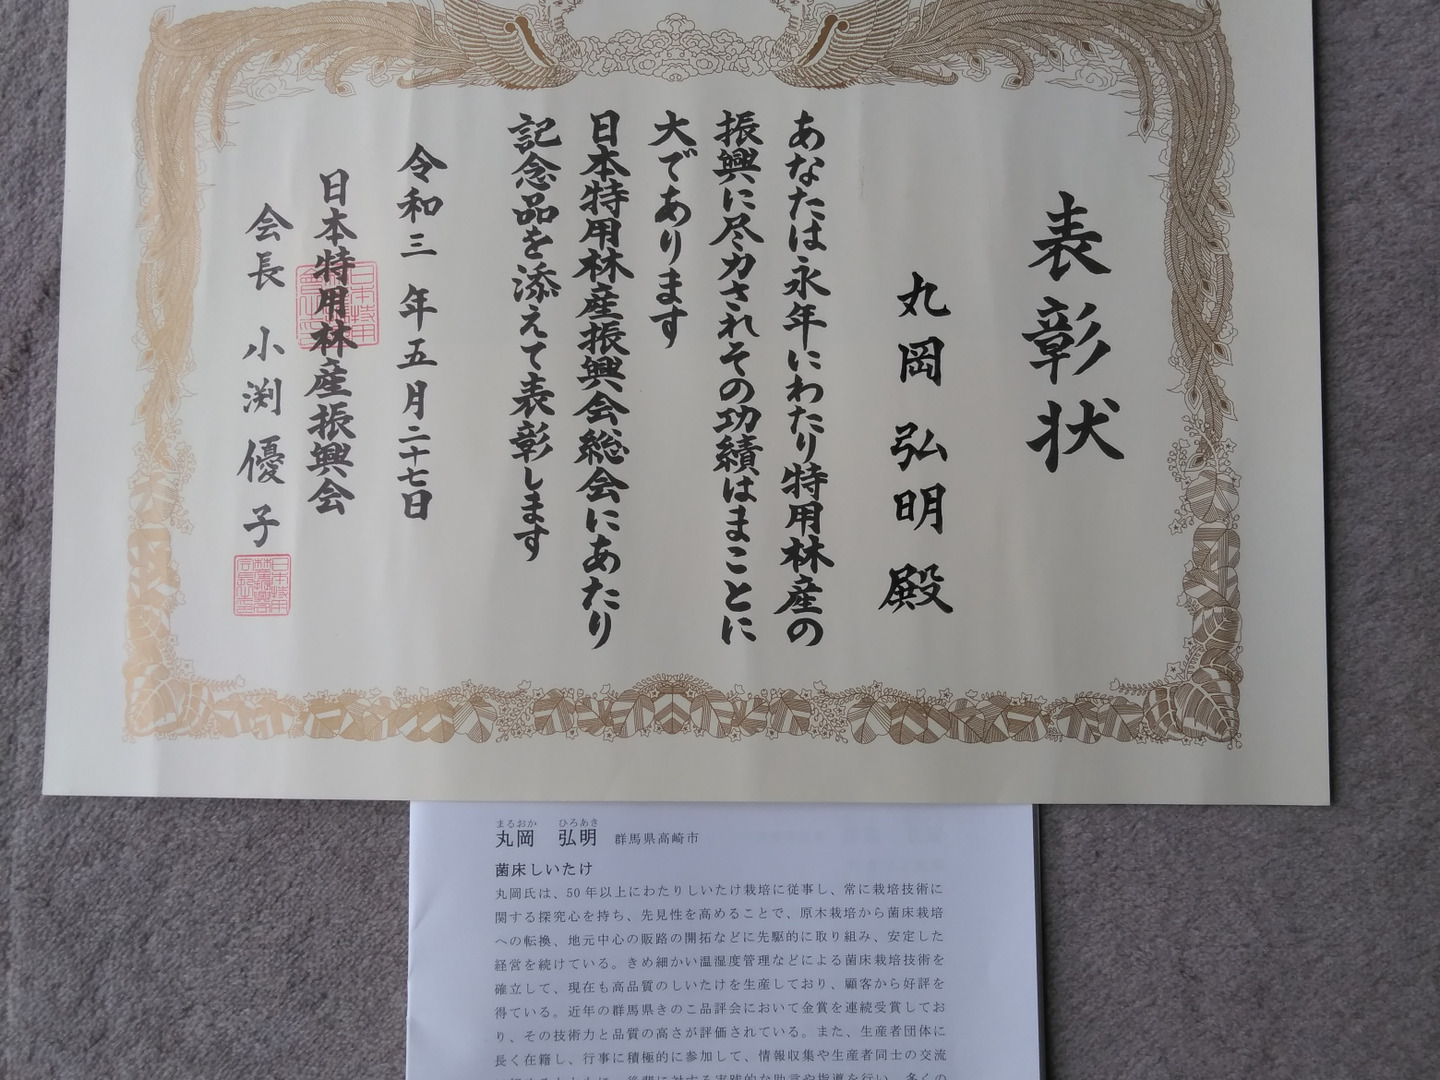 表彰状
丸岡弘明殿
あなたは永年にわたり特用林産の
振興に尽力されその功績はまことに
大であります
日本特用林産振興会総会にあたり
記念品を添えて表彰します
令和三年五月二十七日
日本特用林産振興会
会長 小渕優子
まるおか ひろあき
丸岡 弘明 群馬県高崎市
菌床しいたけ
丸岡氏は、50年以上にわたりしいたけ栽培に従事し、常に栽培技術に
関する探究心を持ち、先見性を高めることで、原木栽培から菌床栽培
への転換、地元中心の販路の開拓などに先駆的に取り組み、安定した
経営を続けている。きめ細かい温湿度管理などによる菌床栽培技術を
確立して、現在も高品質のしいたけを生産しており、顧客から好評を
得ている。近年の群馬県きのこ品評会において金賞を連続受賞してお
り、その技術力と品質の高さが評価されている。また、生産者団体に
長く在籍し、行事に積極的に参加して、情報収集や生産者同士の交流